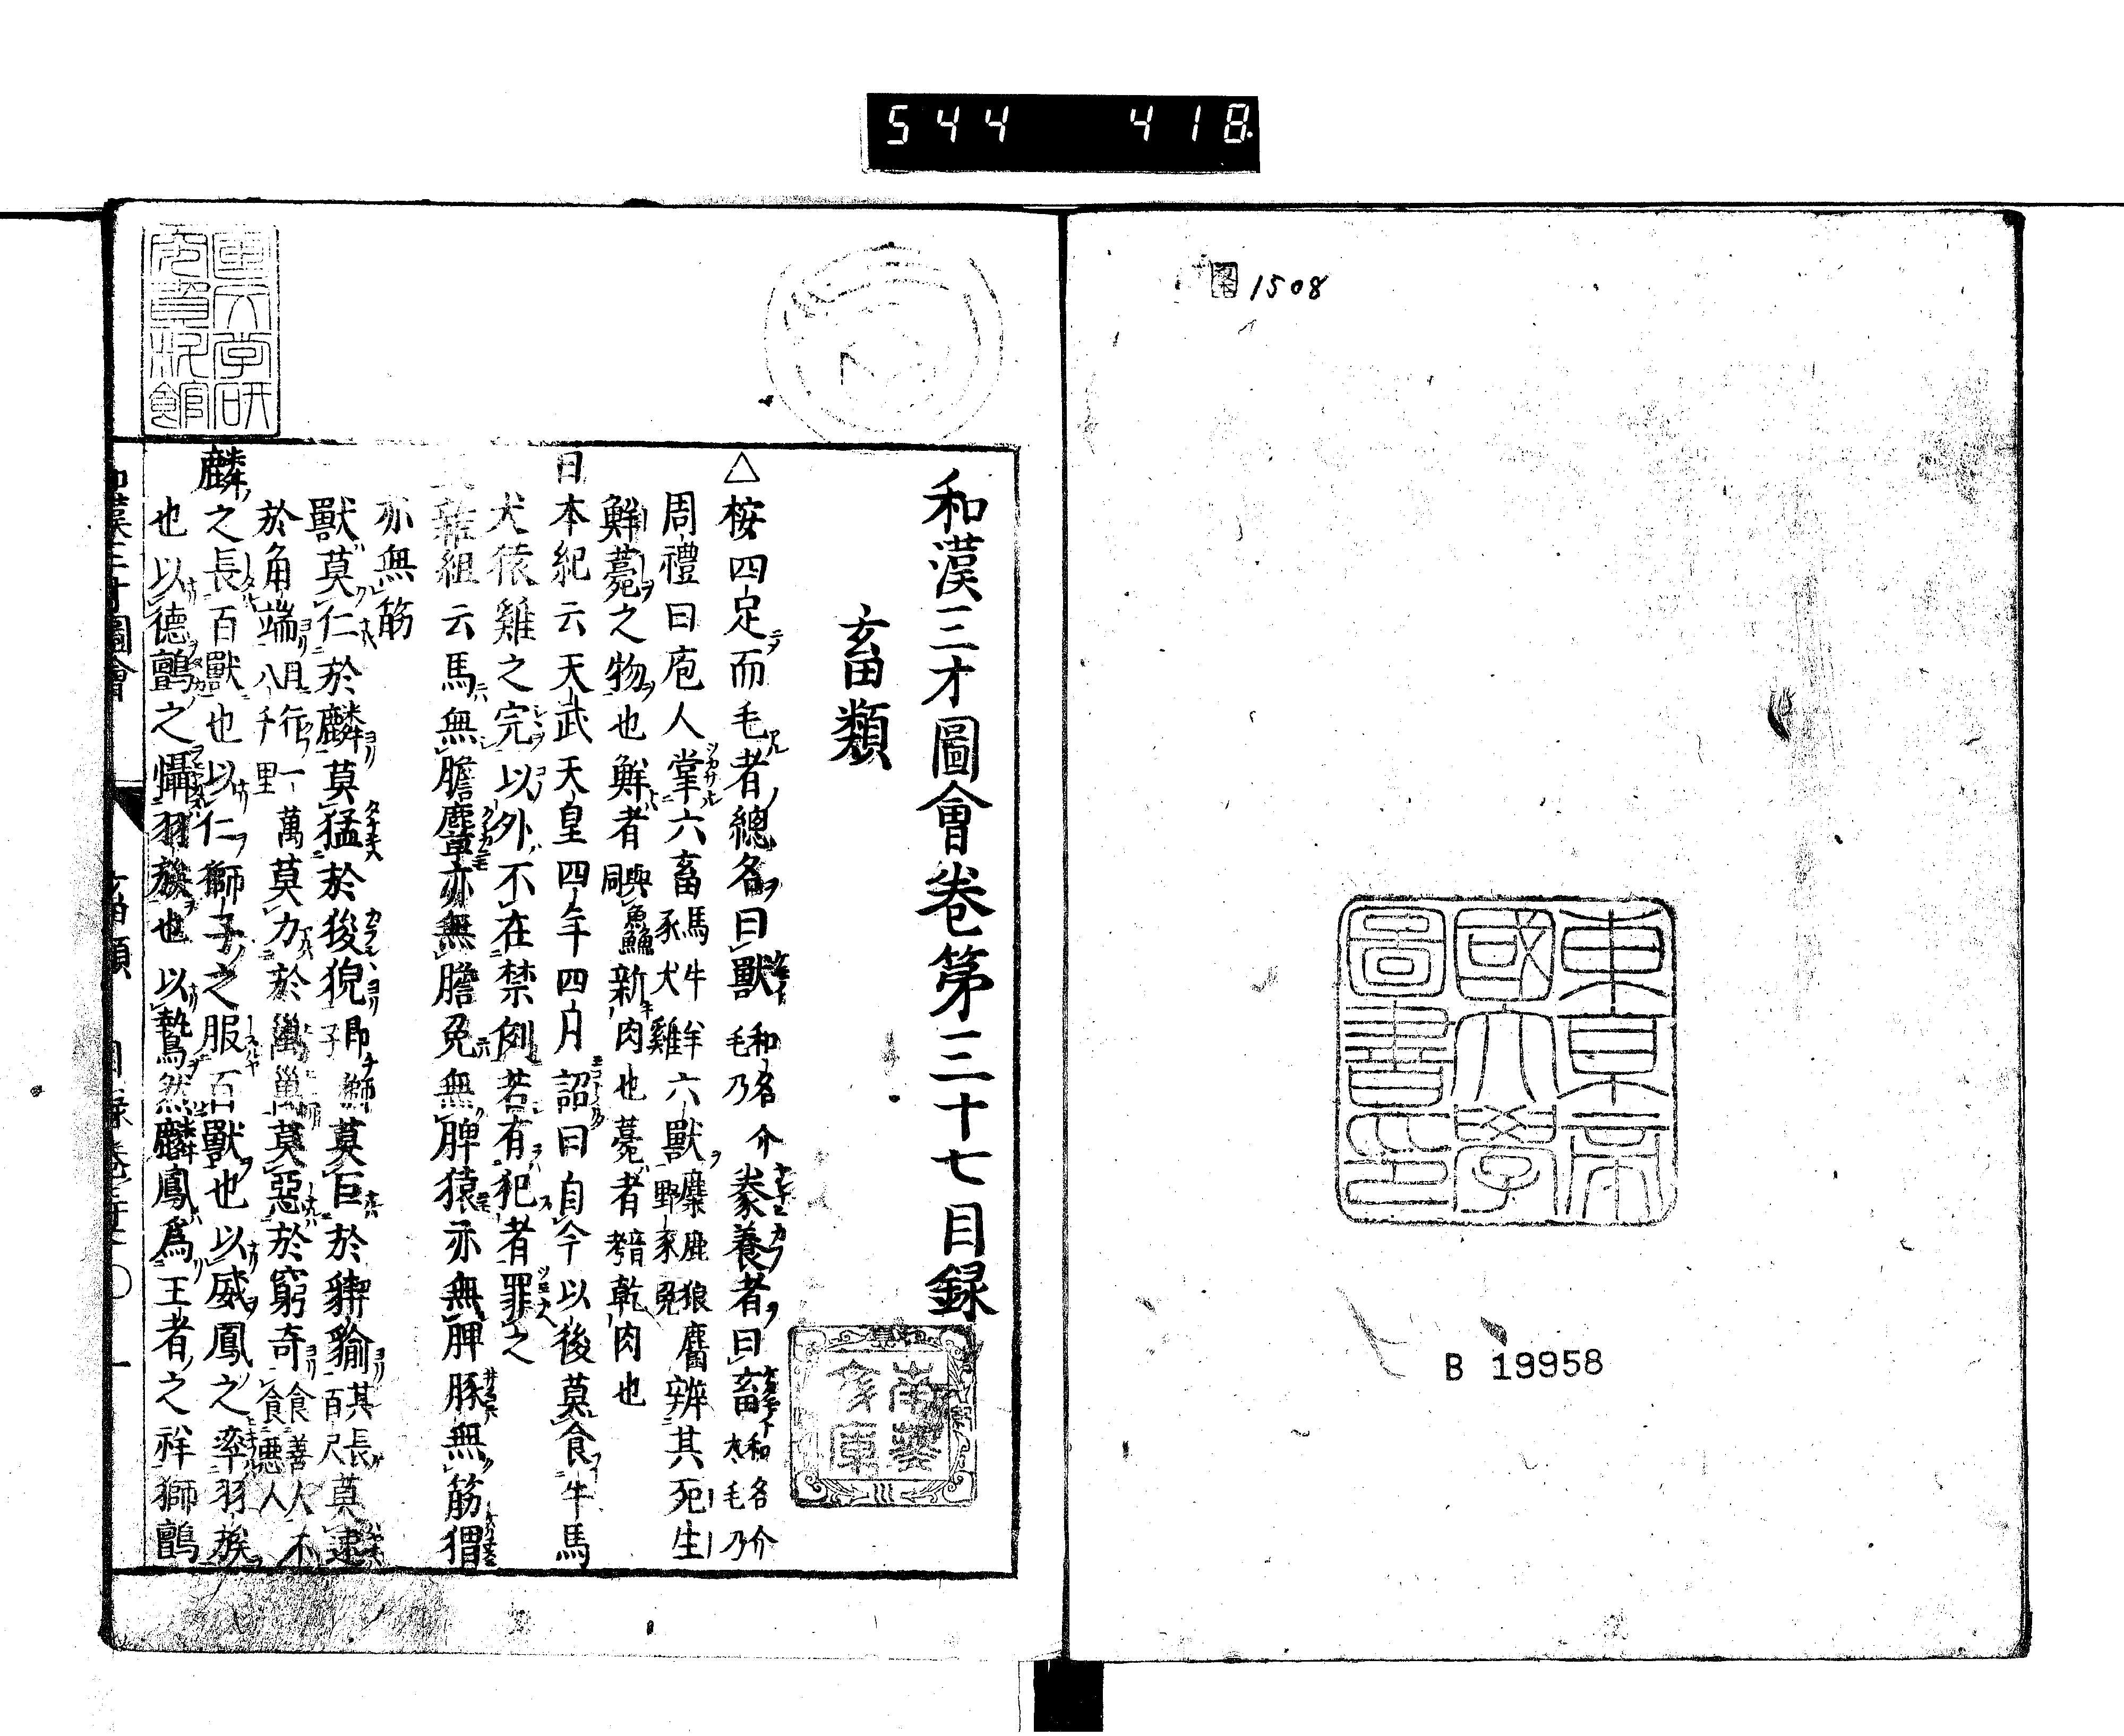 544 418
圖 1508
東京帝
國大學
圖書印
B 19958
和漢三才圖會卷第三十七目録
畜類
△按四足而毛者總名曰獸 和名介毛乃 豢養者曰畜 和名介太毛乃
周禮曰庖人掌六畜 馬牛羊豕犬雞 六獸 麋鹿狼野豕兔 麕辨其死生
鮮薧之物也鮮者 與鱻同 魚新肉也薧者 音考 乾肉也
日本紀云天武天皇四年四月詔曰自今以後莫食牛馬
犬猿雞之完以外不在禁例若有犯者罪之
雜組云馬無膽麞亦無膽兔無脾猿亦無脾豚無筋猬
亦無筋
獸莫仁於麟莫猛於狻猊 即獅子 莫巨於貏貐 其長百尺 莫速
於角端 日行一萬八千里 莫力於𤡔𤡔莫惡於窮奇 食善人不食惡人
麟之長百獸也以仁獅子之服百獸也以威鳳之率羽族
也以德鸇之懾羽族也以鷙然麟鳳爲王者之祥獅鸇
和漢三才圖會 畜類 目録卷三十七 ○一
南葵文庫